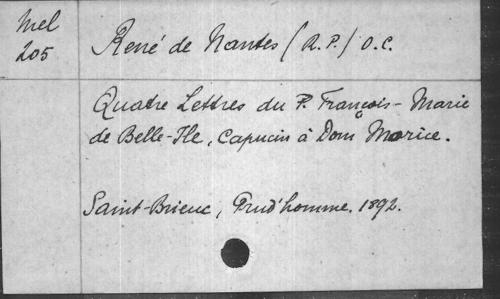 Mel
205
René de Nantes (R.P.) O.C.
Quatre Lettres du P. François-Marie
de Belle-Ile, Capucin à Dom Morice.
Saint-Brieuc, Prud'homme. 1892.